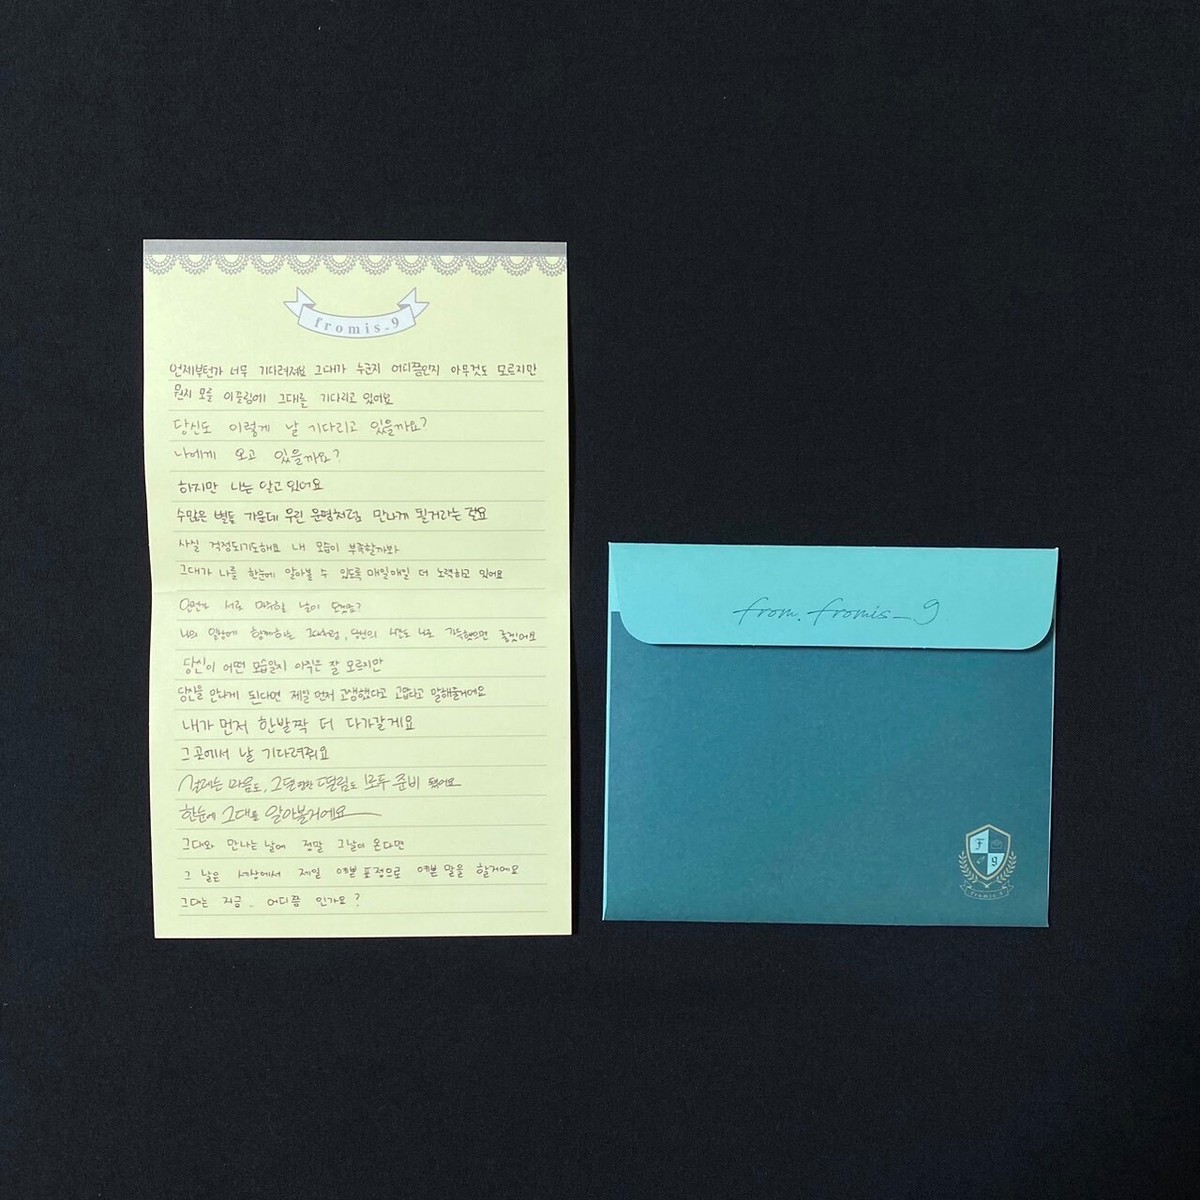 fromis_9
언제부턴가 너무 기다려져요 그대가 누군지 어디쯤인지 아무것도 모르지만
뭔지 모를 이끌림에 그대를 기다리고 있어요
당신도 이렇게 날 기다리고 있을까요?
나에게 오고 있을까요?
하지만 나는 알고 있어요
수많은 별들 가운데 우린 운명처럼 만나게 될거라는 걸요
사실 걱정되기도해요 내 모습이 부족할까봐
그대가 나를 한눈에 알아볼 수 있도록 매일매일 더 노력하고 있어요
언젠가 서로 마주할 날이 오겠죠?
나의 일상에 함께하는 그대처럼, 당신의 시간도 나로 가득했으면 좋겠어요
당신이 어떤 모습일지 아직은 잘 모르지만
당신을 만나게 된다면 제일 먼저 고생했다고 고맙다고 말해줄거에요
내가 먼저 한발짝 더 다가갈게요
그곳에서 날 기다려줘요
설레는 마음도, 그토록 떨림도 모두 준비 됐어요
한눈에 그대를 알아볼거에요
그대와 만나는 날에 정말 그날이 온다면
그 날은 세상에서 제일 예쁜 표정으로 예쁜 말을 할거에요
그대는 지금.. 어디쯤 인가요?
from. fromis_9
F
9
fromis_9